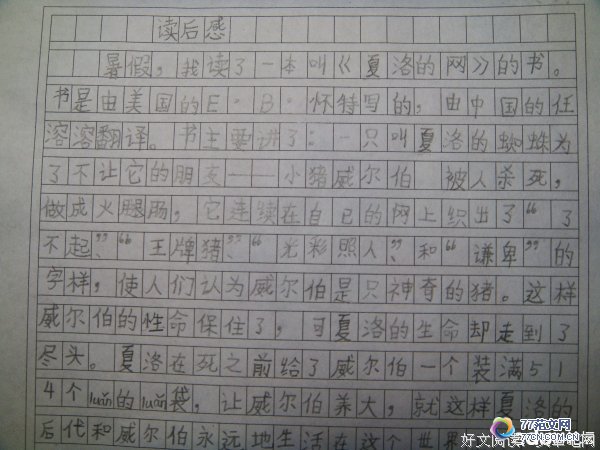 读后感
暑假，我读了一本叫《夏洛的网》的书。
书是由美国的E·B·怀特写的，由中国的任
溶溶翻译。书主要讲了：一只叫夏洛的蜘蛛为
了不让它的朋友——小猪威尔伯 被人杀死，
做成火腿肠，它连续在自己的网上织出了“了
不起”、“王牌猪”、“光彩照人”、和“谦卑”的
字样，使人们认为威尔伯是只神奇的猪。这样
威尔伯的性命保住了，可夏洛的生命却走到了
尽头。夏洛在死之前给了威尔伯一个装满51
4个luǎn的luǎn袋，让威尔伯养大，就这样夏洛的
后代和威尔伯永远地生活在这个世界
77范文网